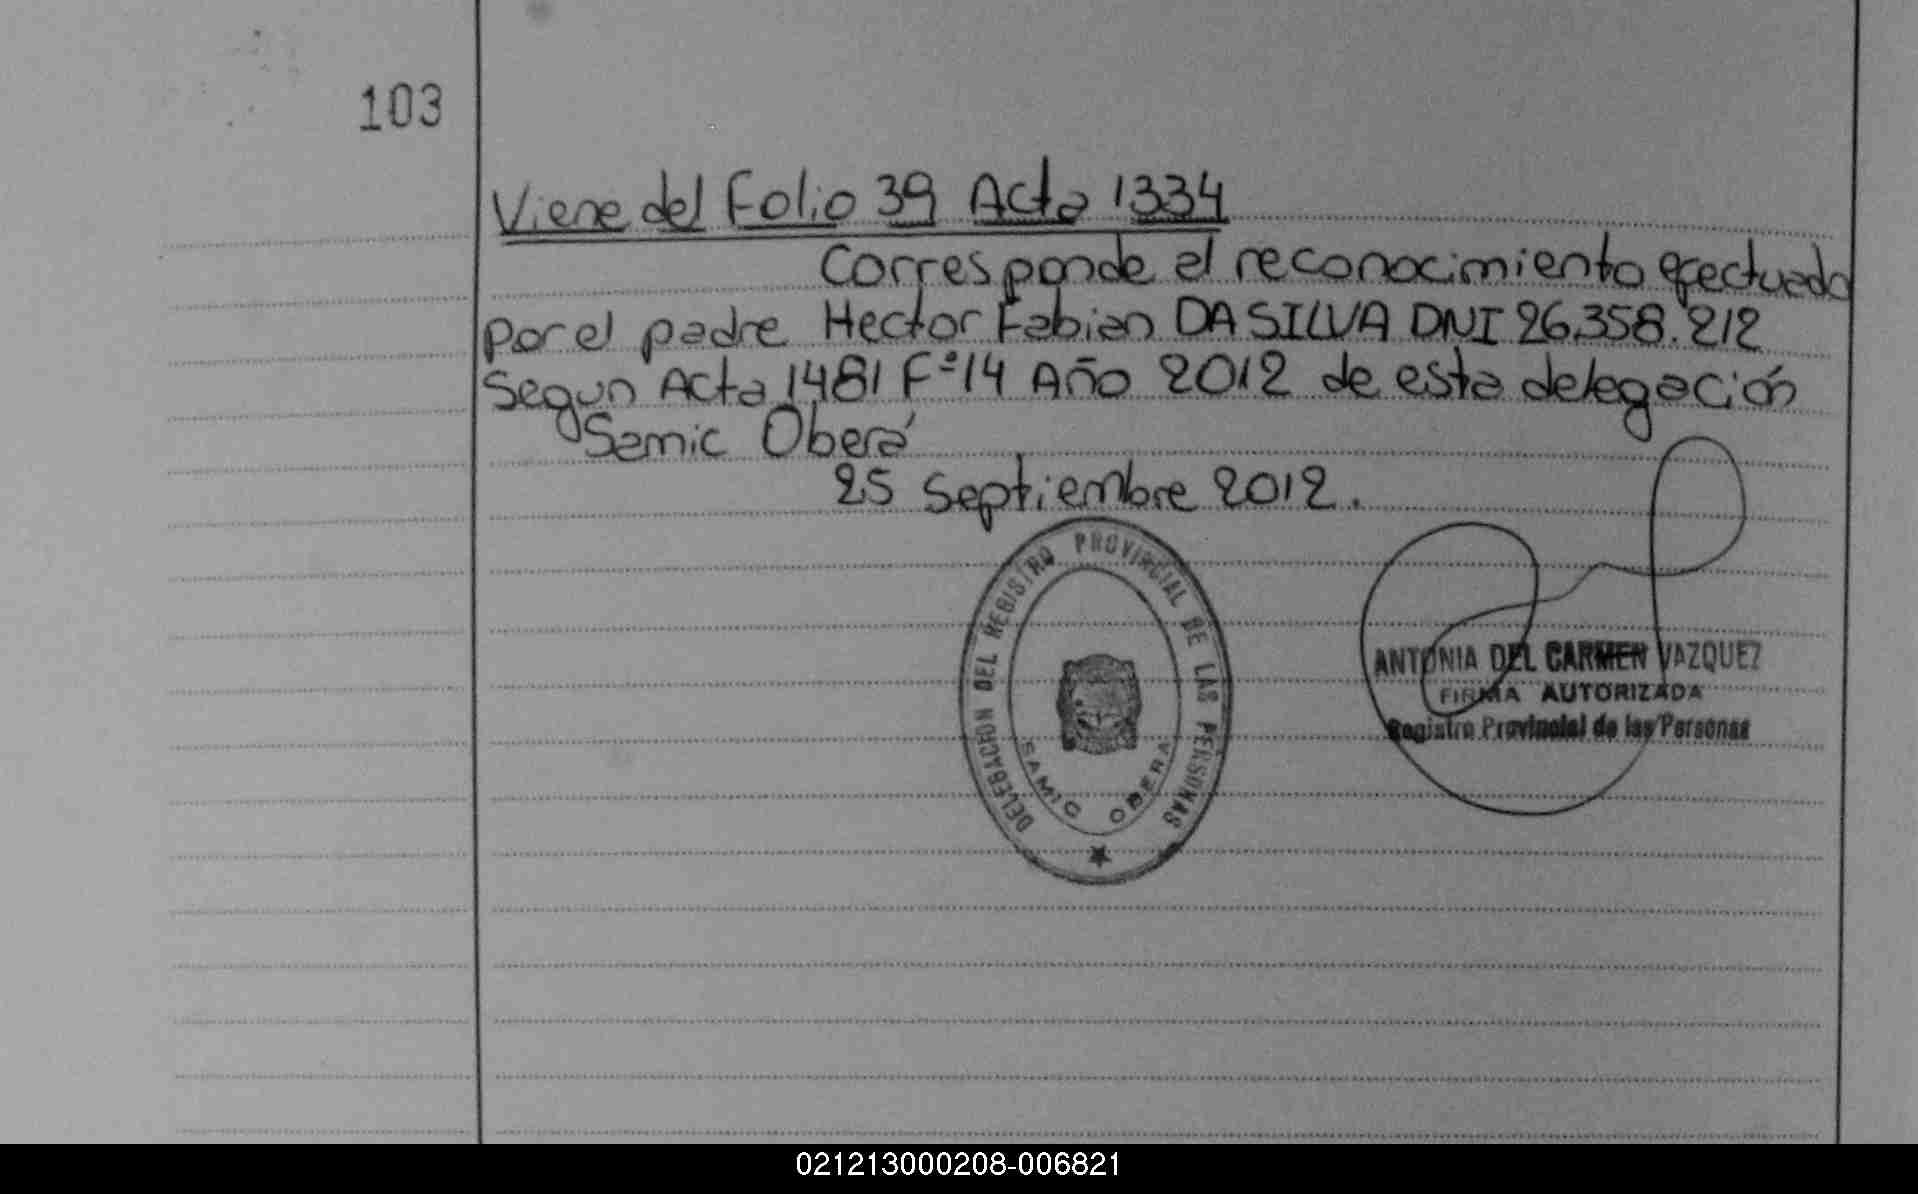 103
Viene del Folio 39 Acta 1334
Corresponde al reconocimiento efectuado
por el padre Hector Fabian DA SILVA DNI 26.358.212
Segun Acta 1481 Fº14 Año 2012 de esta delegación
Samic Oberá
25 Septiembre 2012.
DELEGACION DEL REGISTRO PROVINCIAL DE LAS PERSONAS
SAMIC OBERA
ANTONIA DEL CARMEN VAZQUEZ
FIRMA AUTORIZADA
Registro Provincial de las Personas
021213000208-006821